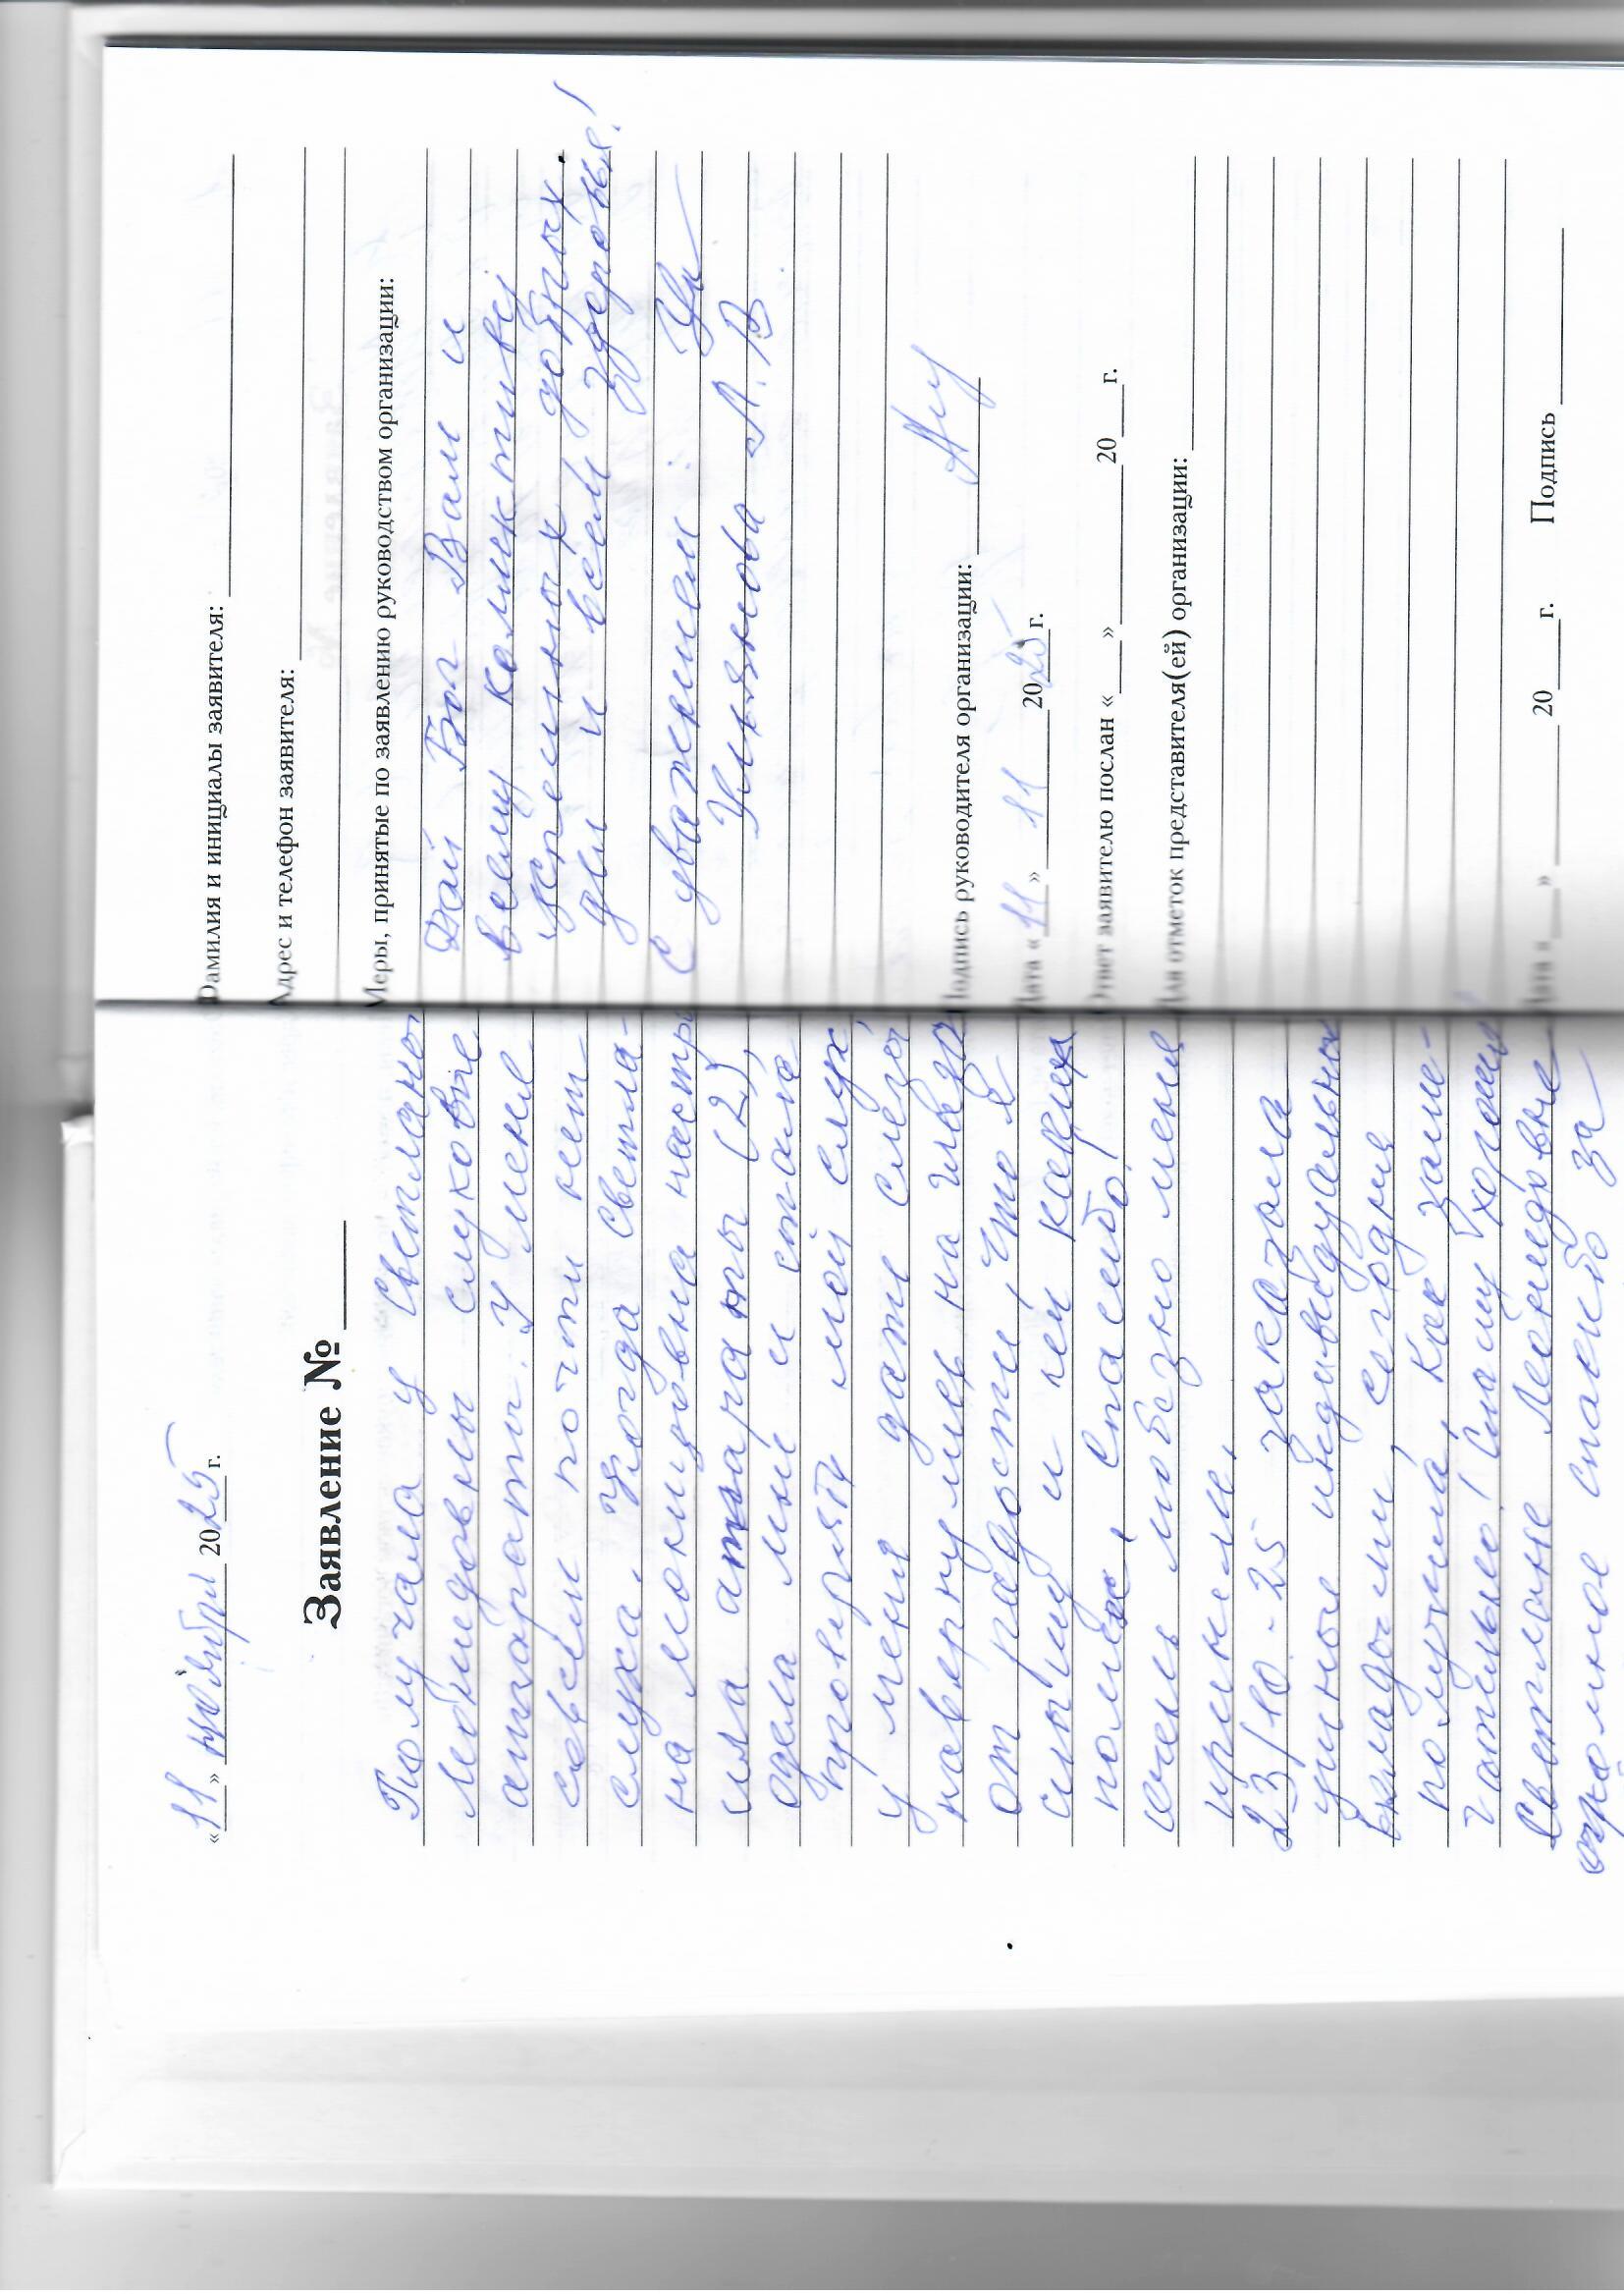 «11» ноября 2025 г.
Заявление № ____
Получала у Светланы
Леонидовны слуховые
аппараты. У меня
совсем почти нет
слуха. Когда Светла-
на Леонидовна настро
ила аппараты (2),
одела мне и стала
проверять мой слух,
у меня даже слёзы
навернулись на глаза
от радости, что я
слышу и ей
спасибо!
очень любезно меня
приняли.
23/10-25 заказала
ушные индивидуальные
вкладыши, сегодня
получила, как заме-
чательно! Слышу хорошо!
Светлане Леонидовне
огромное спасибо за
Фамилия и инициалы заявителя:
Адрес и телефон заявителя:
Меры, принятые по заявлению руководством организации:
Дай Бог Вам и
всему коллективу
успешных добрых
дел и всем здоровья!
С уважением
Л. В.
Подпись руководителя организации:
Дата «11» 11 2025 г.
Ответ заявителю послан «___» ______ 20___ г.
Для отметок представителя(ей) организации:
Дата «___» ______ 20___ г. Подпись ______